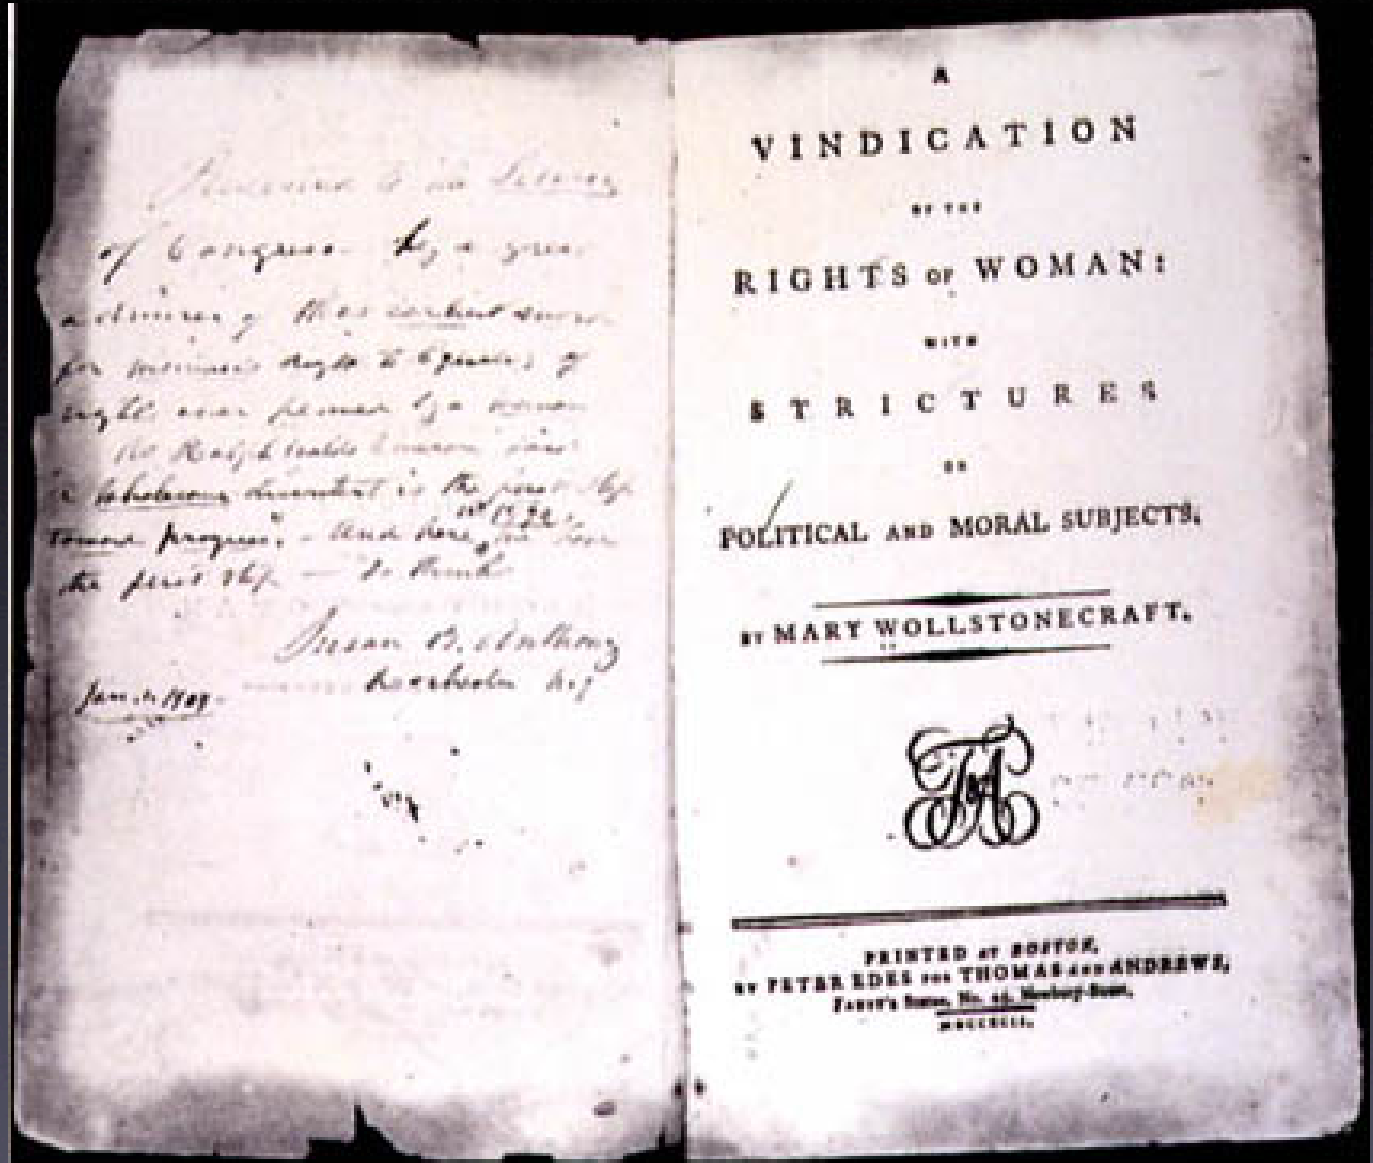 Presented to the Library
of Congress by a great
admirer of this earliest work
for woman's right to Equality of
right ever penned by a woman
As Ralph Waldo Emerson said
"A wholesome discontent is the first step
toward progress." - And here, in 1792, we have
the first step — So thinks
Susan B. Anthony
Rochester N.Y.
Jan. 1, 1904 -
A
VINDICATION
OF THE
RIGHTS OF WOMAN:
WITH
STRICTURES
ON
POLITICAL AND MORAL SUBJECTS,
BY MARY WOLLSTONECRAFT.
PRINTED AT BOSTON,
BY PETER EDES FOR THOMAS AND ANDREWS,
FAUST'S Statue, No. 45, Newbury-Street,
MDCCXCII.